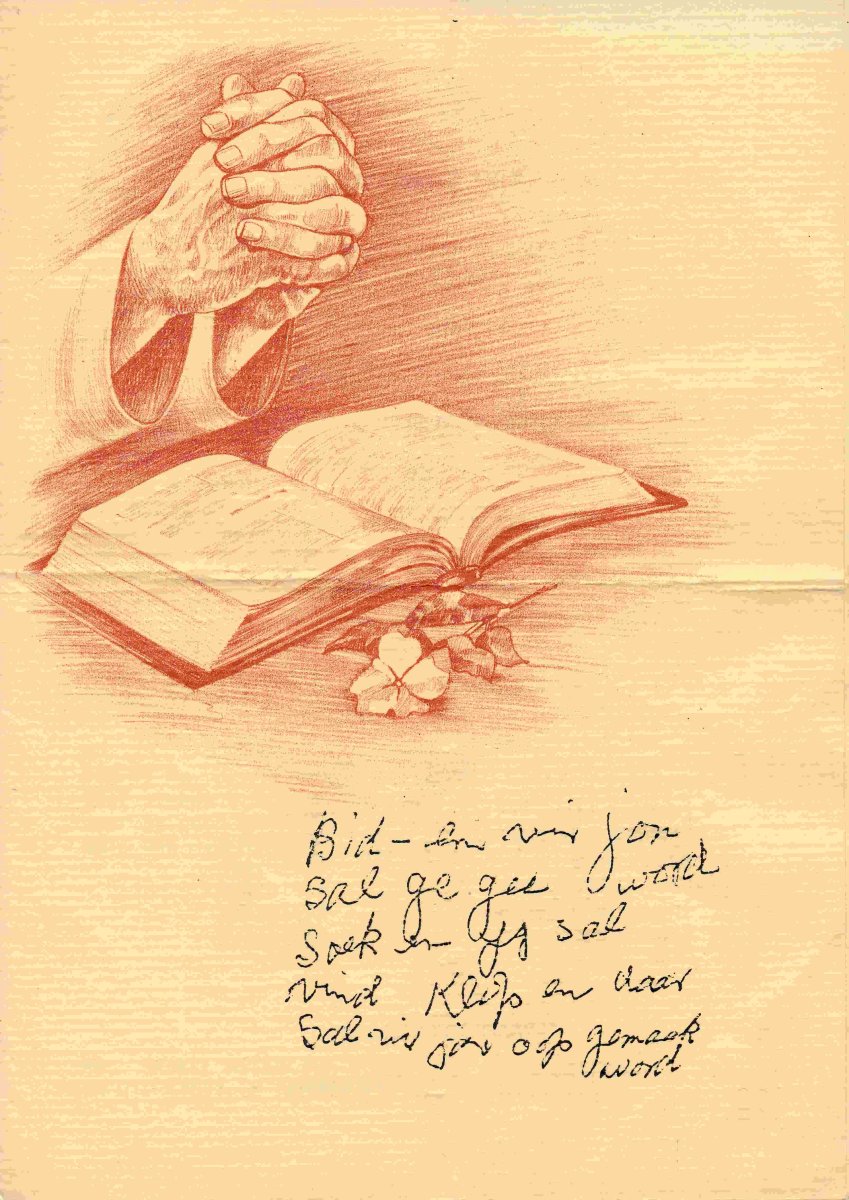 Bid - en vir jou
sal ge gee word
Soek en jy sal
vind Klop en daar
Sal vir jou oop gemaak
word